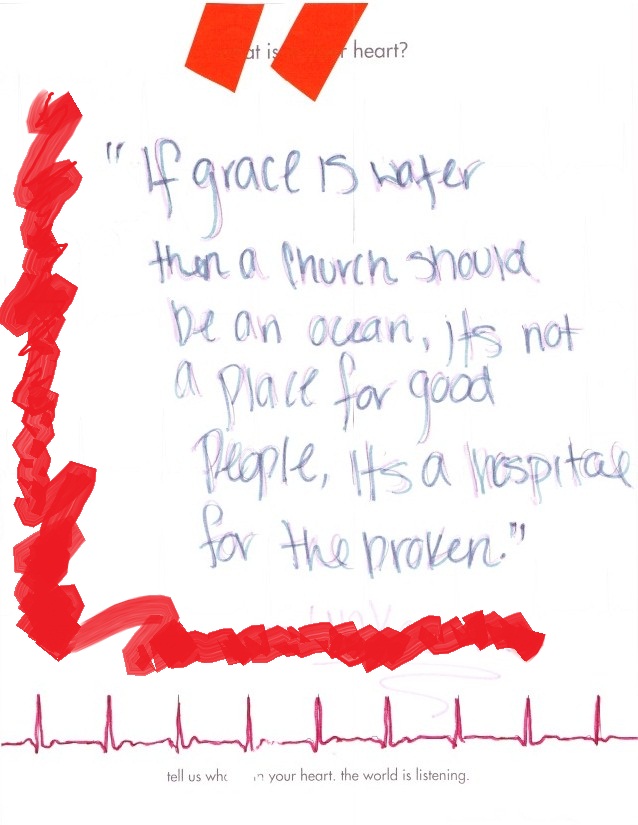 is heart?
"If grace is water
then a church should
be an ocean, its not
a place for good
People, Its a hospital
for the broken."
tell us your heart. the world is listening.